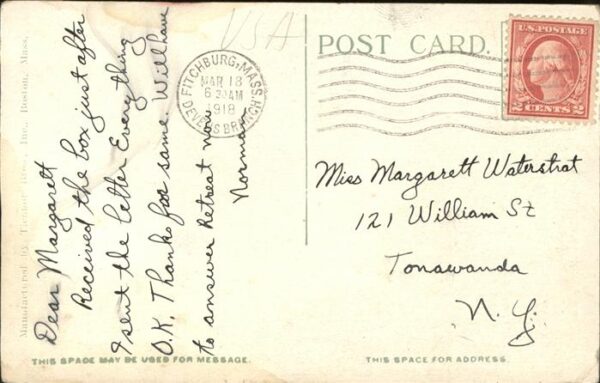 USA
POST CARD.
U.S. POSTAGE
2 CENTS 2
FITCHBURG, MASS.
MAR 18
6 30AM
1918
DEVENS BRANCH
Dear Margarett
Received the box just after
I sent the letter Everything
O.K. Thanks for same. Will have
to answer Retreat now
Norman
Miss Margarett Waterstrat
121 William St
Tonawanda
N.Y.
Manufactured by Bros., Inc., Boston, Mass.
THIS SPACE MAY BE USED FOR MESSAGE.
THIS SPACE FOR ADDRESS.